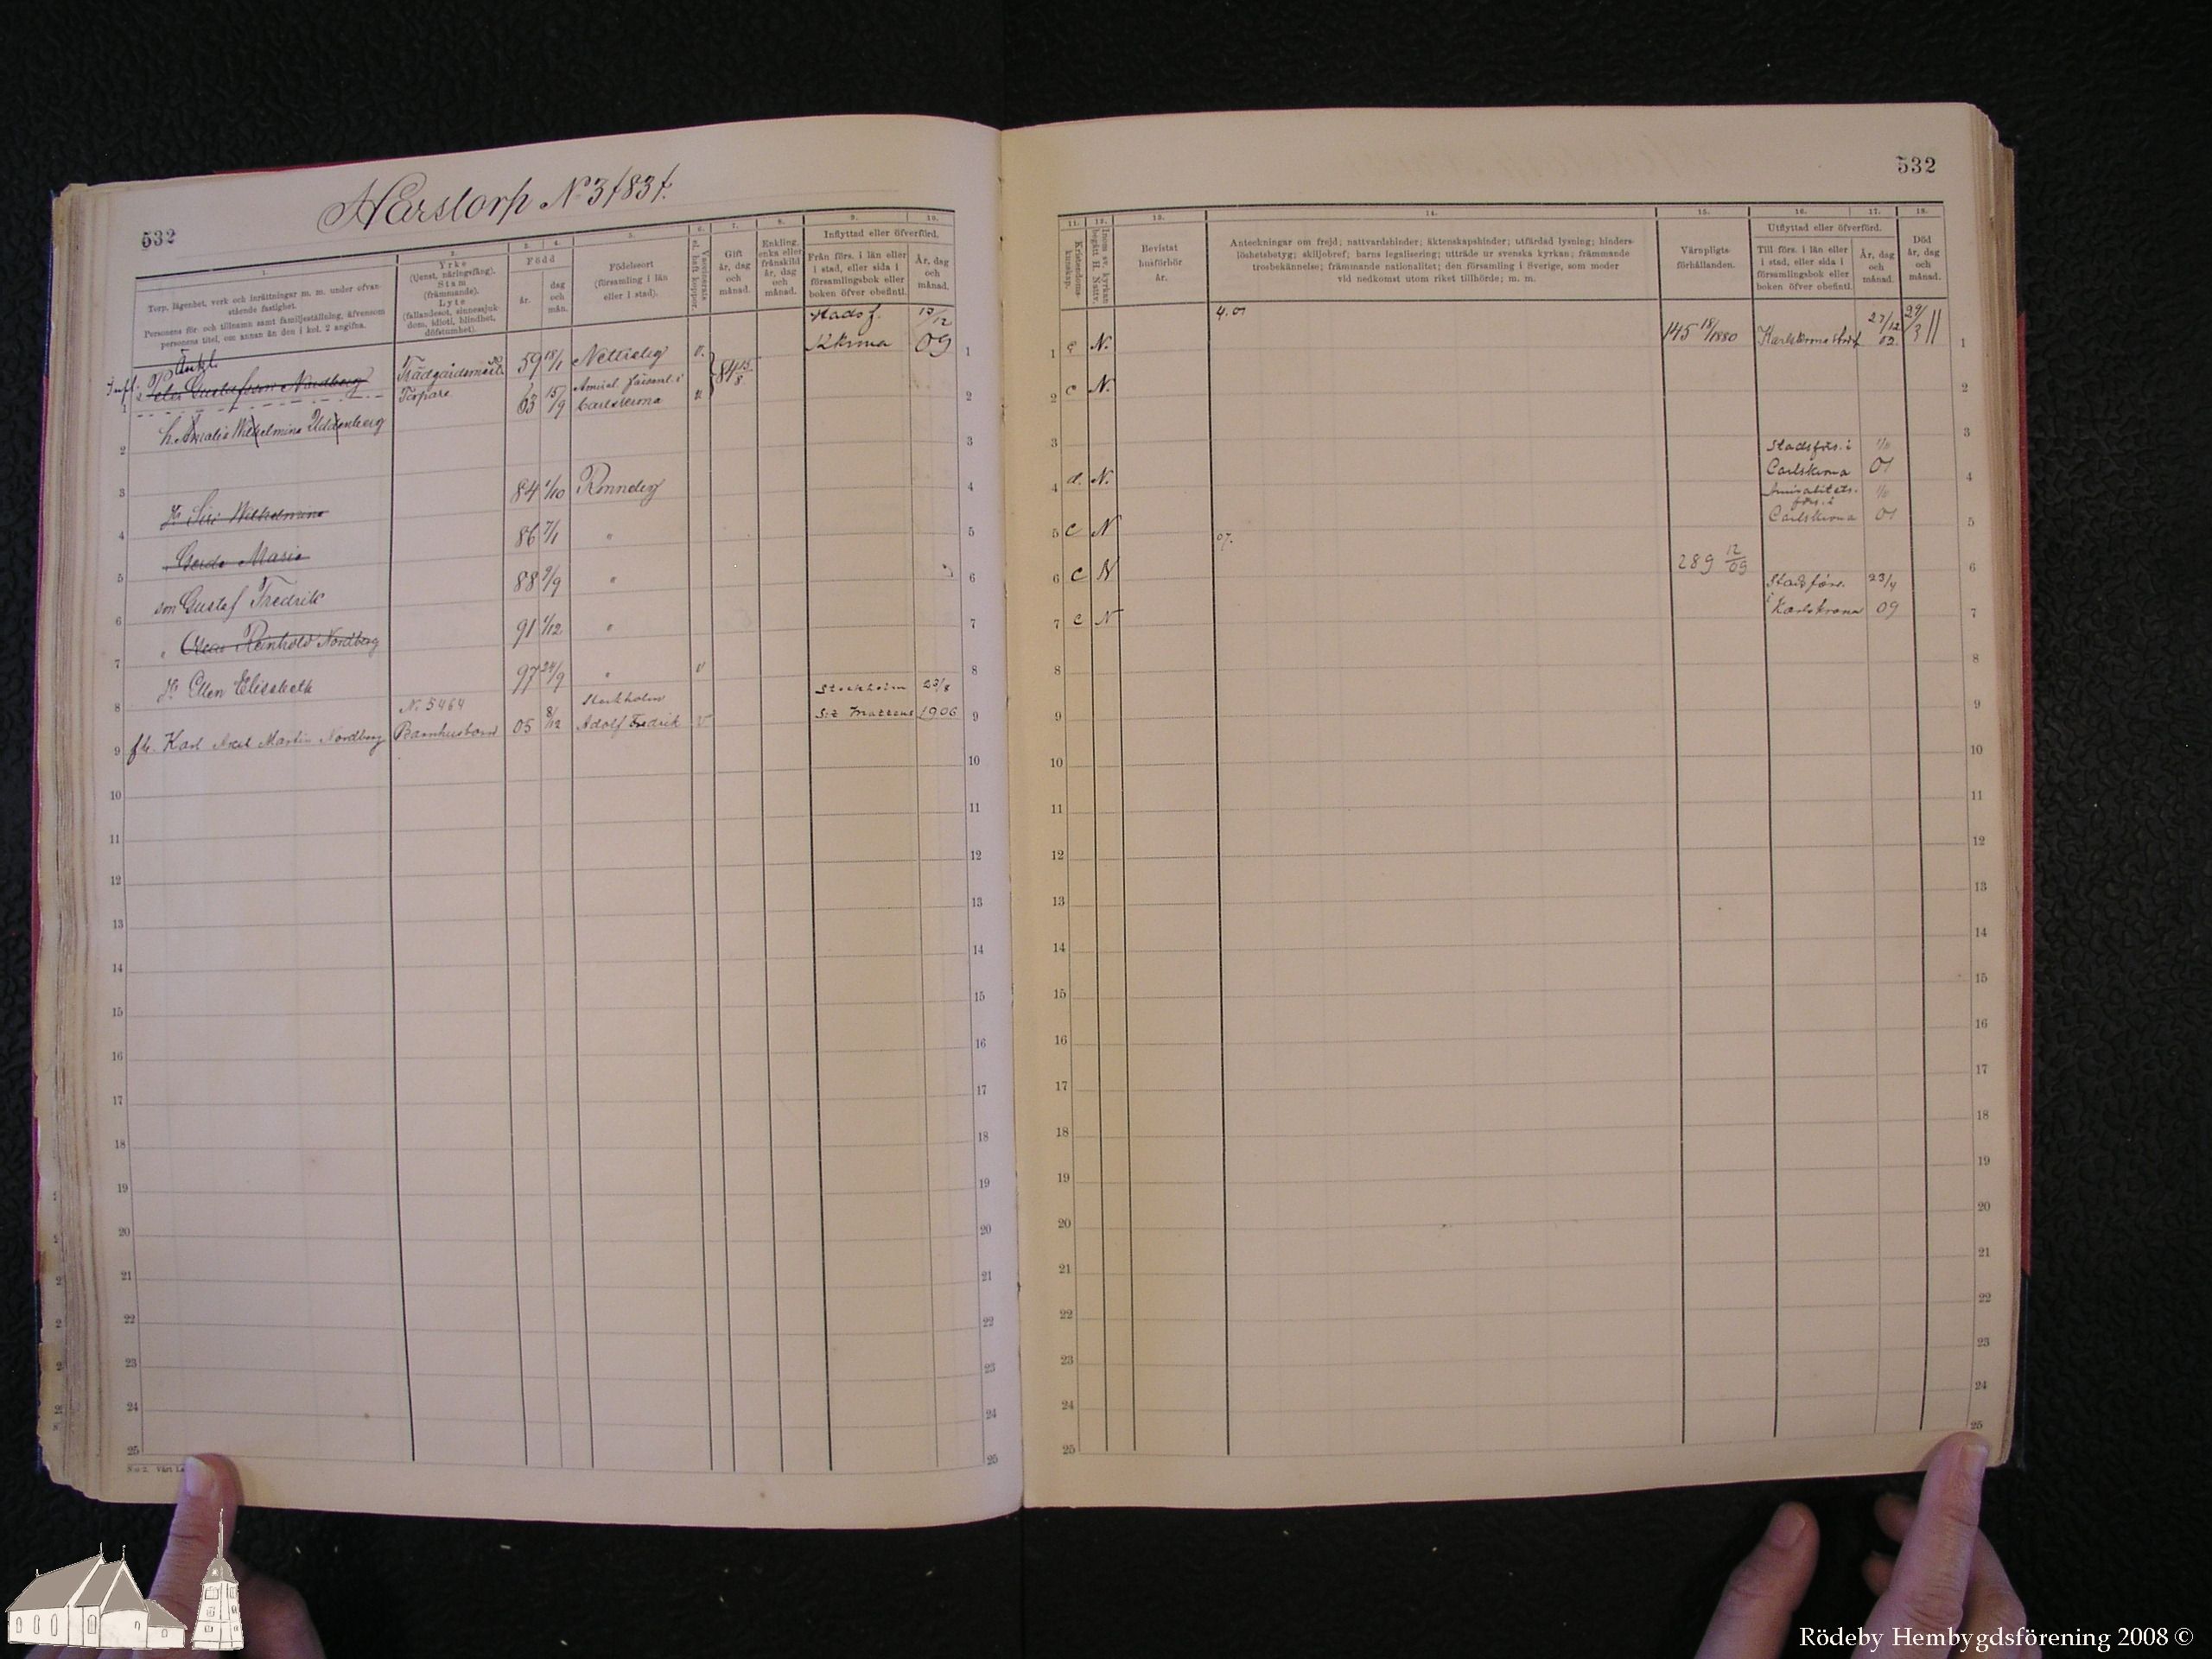 532
Harstorp No 3/83/.
1. 2. 3. 4. 5. 6. 7. 8. 9. 10.
Torp, lägenhet, verk och inrättningar m. m. under ofvan-
stående fastighet.
Personens för- och tillnamn samt familjeställning, äfvensom
personens titel, om annan än den i kol. 2 angifna.
Yrke
(tjenst, näringsfång).
Stam
(främmande).
Lyte
(fallandesot, sinnessjuk-
dom, idioti, blindhet,
döfstumhet).
Född
år.
dag
och
mån.
Födelseort
(församling i län
eller i stad).
Vaccinerats
el. haft koppor.
Gift
år, dag
och
månad.
Enkling,
enka eller
frånskild
år, dag
och
månad.
Inflyttad eller öfverförd.
Från förs. i län eller
i stad, eller sida i
församlingsbok eller
boken öfver obefintl.
År, dag
och
månad.
Stadsf. 13/12
Kkrona 09
1 Nordberg 59 18/1 Nettraby v.
Torpare
2 h. Amalia Wilhelmina Uddenberg 63 15/9 Amiral. församl. i Carlskrona v 84 15/8
3
4 Siri Wilhelmina 84 1/10 Ronneby
5 Gerda Maria 86 7/1 "
6 son Gustaf Fredrik 88 9/9 "
7 " Reinhold Nordberg 91 1/12 "
8 Ellen Elisabeth 97 24/9 " v
N. 5464 Stockholm Stockholm 23/8
9 fb. Karl Axel Martin Nordberg Barnhusbarn 05 8/12 Adolf Fredrik v S:t Matteus 1906
10
11
12
13
14
15
16
17
18
19
20
21
22
23
24
25
532
11. 12. 13. 14. 15. 16. 17. 18.
Kristendoms-
kunskap.
Inom sv. kyrkan
begått H. Nattv.
Bevistat
husförhör
år.
Anteckningar om frejd; nattvardshinder; äktenskapshinder; utfärdad lysning; hinders-
löshetsbetyg; skiljobref; barns legalisering; utträde ur svenska kyrkan; främmande
trosbekännelse; främmande nationalitet; den församling i Sverige, som moder
vid nedkomst utom riket tillhörde; m. m.
Värnpligts-
förhållanden.
Utflyttad eller öfverförd.
Till förs. i län eller
i stad, eller sida i
församlingsbok eller
boken öfver obefintl.
År, dag
och
månad.
Död
år, dag
och
månad.
4. 01
1 c N. 145 18/1880 Karlskrona 27/12 02. 29/3 11
2 c N.
3 Stadsförs. i
4 d. N. Carlskrona 01
Amiralitets-
förs. i
5 c N Carlskrona 01
07.
6 c N 289 12/09 Stadsförs. 23/4
7 c N i Karlskrona 09
8
9
10
11
12
13
14
15
16
17
18
19
20
21
22
23
24
25
Rödeby Hembygdsförening 2008 ©